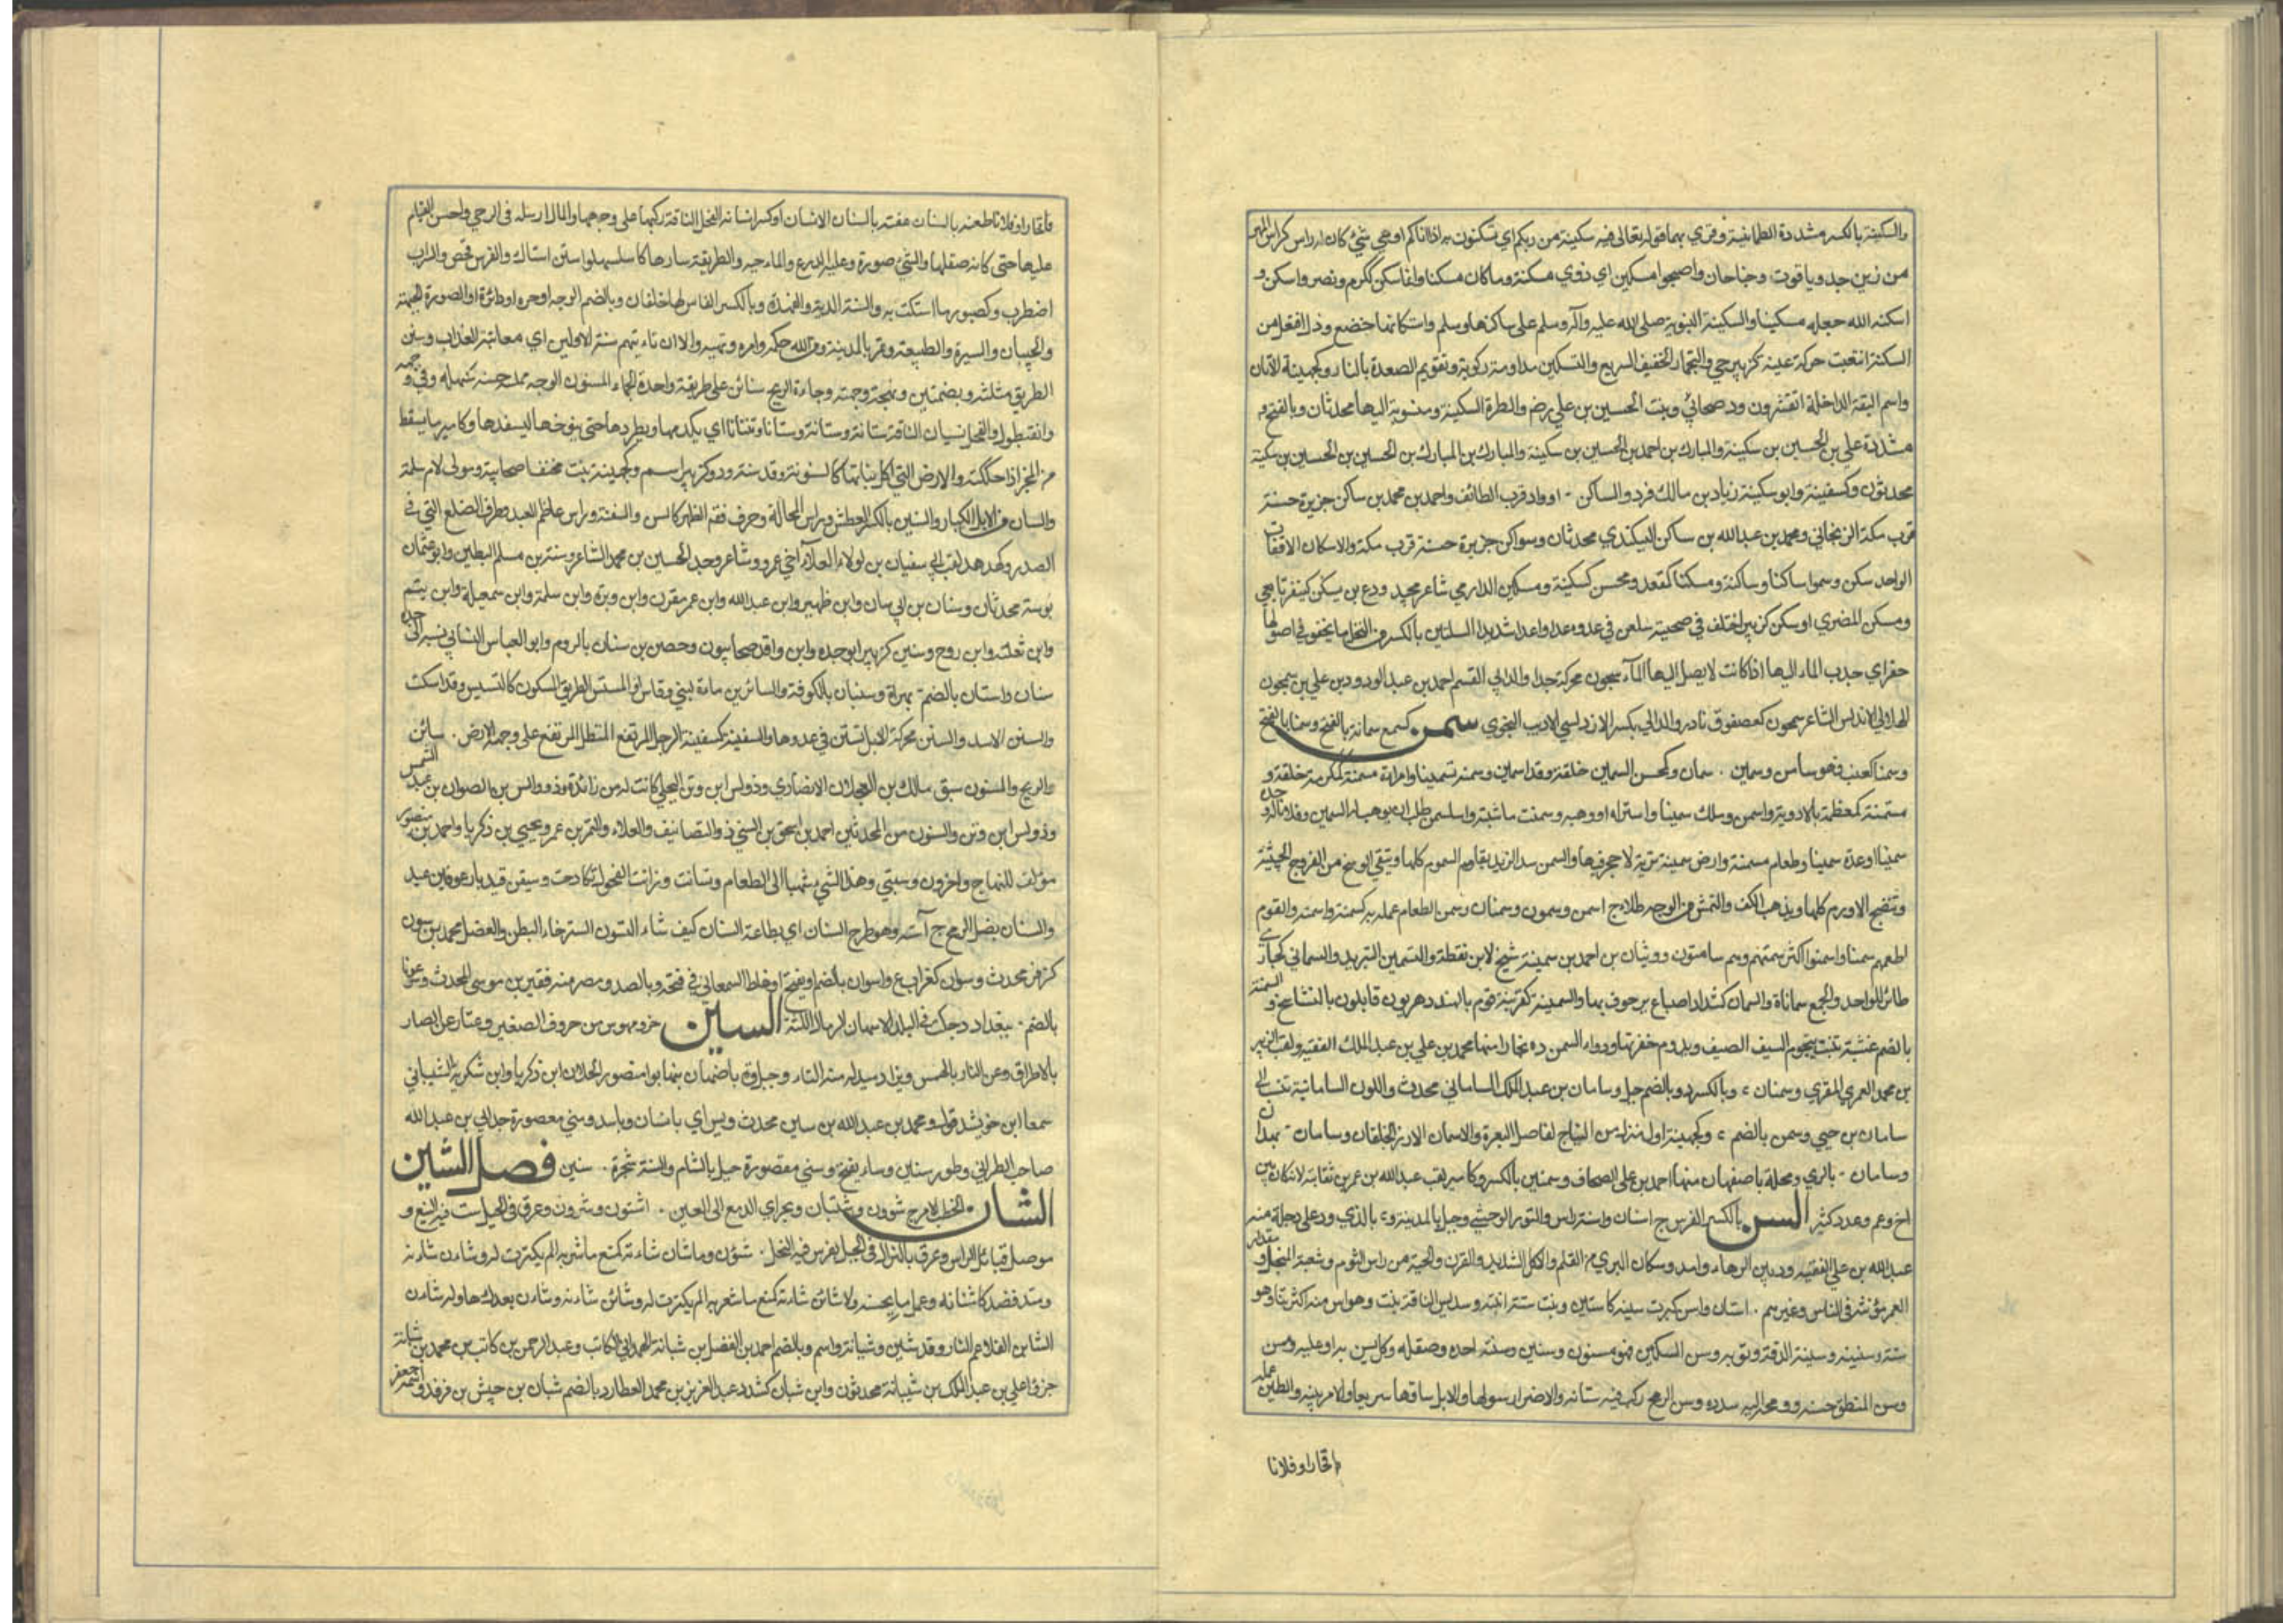 والسكينة بالكسر مشددة الطمانينة وقري بهما قوله تعالى فيه سكينة من ربكم اي تسكنون به اذا اتاكم او هي شئ كان له راس كراس الهر
من زبرجد وياقوت وجناحان واصبحوا مسكين اي ذوي مسكنة وما كان مسكنا وانما سكن ككرم ونصر واسكن و
اسكنه الله جعله مسكينا والسكينة النبوية صلى الله عليه وآله وسلم على ساكنها وسلم واستكانتها خضع وذل افتعل من
السكنة اشبعت حركة عينه كزبير حي والحمار الخفيف السريع والتسكين مداومة ركوبه وتقويم الصعدة بالنار وكجهينة الاتان
واسم البقة الداخلة انف نمرود صحابي وبنت الحسين بن علي رض والطرة السكينة منسوبة اليها محدثان وبالفتح و
مشددة علي بن الحسين بن سكينة والمبارك بن احمد بن الحسين بن سكينة والمبارك بن المبارك بن الحسين بن الحسين بن سكينة
محدثون وكسفينة وابو سكينة زياد بن مالك فرد والساكن او واد قرب الطائف واحمد بن محمد بن ساكن جزيرة حسنة
قرب مكة الزنجاني ومحمد بن عبد الله بن ساكن البيكندي محدثان وسواكن جزيرة حسنة قرب مكة والاسكان الاقوات
الواحد سكن وسموا ساكنا وساكنة ومسكنا كمقعد ومحسن كسكينة ومسكين الدارمي شاعر مجيد ودرع بن يسكن كينفر تابعي
ومسكن المضري او سكن كزبير اختلف في صحبته سلعن في عدوه عدا عدوا شديدا السلتين بالكسر من النخل ما يحفر في اصولها
حفر اي جدب الماء اليها اذا كانت لا يصل اليها الماء سمجون محركة جد والد ابي القسم احمد بن عبد الودود بن علي بن سمجون
الهلالي الاندلسي الشاعر سمحون كعصفوق نادر والد ابي بكر الاندلسي الاديب النحوي سمن كسمع سمانة بالفتح وسمنا بالفتح
وسمنا كعنب فهو سامن وسمين . سمان وكمحسن السمين خلقة وقد اسمن وسمنه تسمينا وامراة مسمنة كمكرمة خلقة و
مسمنة كمعظمة بالادوية واسمن وملك سمينا واشتراه او وهبه وسمنت ماشيته واستسمن طلب ان يوهب له السمين وفلانا وجده
سمينا او عده سمينا وطعام مسمنة وارض سمينة تربة لا حجر فيها والسمن سلاء الزبد يقاوم السموم كلها وينقي الوسخ من القروح الخبيثة
وينضج الاورام كلها ويذهب الكلف والنمش من الوجه طلاء ج اسمن وسمون وسمنان وسمن الطعام عمله به كسمنه واسمنه والقوم
اطعمهم سمنا واسمنوا اكثر سمنهم وهم سامنون وروثان بن احمد بن سمينة شيخ لابن نقطة والتسمين التبريد والسماني كحبارى
طائر للواحد والجمع سماناة والسمان كشداد اصباغ يزخرف بها والسمنية كعرنية قوم بالهند دهريون قائلون بالتناسخ و السمنة
بالضم عشبة تنبت بنجوم الصيف وتدوم خضرتها ودواء السمن وة ببخارا منها محمد بن علي بن عبد الملك الفقيه ولقب الزبير
بن محمد العمري المقري وسمنان د وبالكسر د وبالضم جبل وسامان بن عبد الملك الساماني محدث والملوك السامانية تنسب الى
سامان بن حيي وسمن بالضم ع وكجهينة اول منزل من النباج لقاصد البصرة والاسمان الازر الخلقان وسامان بهمدان
وسامان بالري ومحلة باصفهان منها احمد بن علي الصحاف وسمنين بالكسر وكامير لقب عبد الله بن عمر بن ثقابة لانه كان بين
اخ وعم وعدد كثير السن بالكسر الضرس ج اسنان واسنة واسن والثور الوحشي وجبل بالمدينة و بالري ود على دجلة منه
عبد الله بن علي الفقيه ود بين الرها وامد ومكان البري من القلم والاكل الشديد والقرن والحبة من راس الثوم وشعبة المنجل و مقدار
العمر مؤنثة في الناس وغيرهم . اسنان واسن كبرت سنه كاستسن ونبت سنه انبته وسديس الناقة نبت وهو اسن منه اكثر سنا وهو
سنه وسنينه وسنينته لدته وتربه وسن السكين فهو مسنون وسنين وسننه احده وصقله وكل ما يسن به او عليه مسن
وسن المنطق حسنه ورمحه اليه سدده وسن الرمح ركب فيه سنانه والاضراس سوكها والابل ساقها سريعا والامر بينه والطين عمله
فاخرا وفلانا
فاخرا وفلانا طعنه بالسنان عضه بالسنان الاسنان او كسر اسنانه الفحل الناقة كبها على وجهها والمال ارسله في الرعي واحسن القيام
عليها حتى كانه صقلها والشئ صوره وعليه الدرع والماء صبه والطريقة سارها كاستسنها واستن استاك والفرس قمص والسراب
اضطرب وكصبور ما استكت به والسنة الدبة والفهدة وبالكسر الفاس لها خلفان وبالضم الوجه او حره او دائرته او الصورة والجبهة
والجبينان والسيرة والطبيعة وتمر بالمدينة ومن الله حكمه وامره ونهيه والا ان تاتيهم سنة الاولين اي معاينة العذاب وسنن
الطريق مثلثة وبضمتين ونهجه وجهته وجاءت الريح سنائن على طريقة واحدة والحماء المسنون الوجه مملسه حسنه سهله وفي وجهه
وانفه طول والفحل نسيان الناقة سنانة وسنانة وسنانا وتسنانا اي يكدمها ويطردها حتى ينوخها ليسفدها وكامير ما يسقط
من الحجر اذا حككته والارض التي اكل نباتها كالمسنونة وقد سنت ود وكزبير اسم وكجهينة بنت مخنف صحابية ومولى لام سلمة
والسان من الابل الكبار والسنين بالكسر العطش وراس المحالة وحرف فقر الظهر كالسن والسنسنة وراس عظام الصدر او طرف الضلع التي في
الصدر وكهدهد لقب ابي سفيان بن العلاء اخي عمرو وشاعر وجد الحسين بن محمد الشاعر وسنة بن مسلم البطين وابو عثمان
بن سنة محدثان وسنان بن ابي سنان وابن ظهير وابن عبد الله وابن عمرو بن مقرن وابن وبرة وابن سلمة وابن سمعلة وابن يتيم
وابن ثعلبة وابن روح وسنين كزبير ابو جميلة وابن واقد صحابيون وحصن بن سنان بالروم وابو العباس السناني نسبة الى جده
سنان واسنان بالضم ة بهراة وسنينان بالكوفة والسنائن ماءة لبني وقاص والمستسن الطريق المسلوك كالمتسنن وقد استسنت
والسنن الاسد والسنن محركة الابل تستن في عدوها والسنينة كسفينة الرمل المرتفع المستطيل المرتفع على وجه الارض . سنائن
والريح والمسنون سبق مالك بن العجلان الانصاري وذو السن ابن وثن البجلي كانت له سن زائدة وذو السن بن الصوان بن عبد شمس
وذو السنين وثن والسنون من المحدثين احمد بن اسحق بن السني ذو التصانيف والعلاء والنمر بن عمرو ويحيى بن زكريا واحمد بن منصور
مؤلف المنهاج واخرون وسنني هذا الشئ شهاني الى الطعام وتسانت وسانت الفحولة تكادمت وسنن قيد بارعوفا بن عبد
والسنان نصل الرمح ج اسنة وهو طوع السنان اي يطاوعه السنان كيف شاء التسون استرخاء البطن والفضل محمد بن سون
كزفر محدث وسوان كغراب ع واسوان بالضم او يفتح وغلط السمعاني في فتحه وبالصعيد مصر منه فقير بن موسى المحدث وسونايا
بالضم ة ببغداد دخلت في البلد الاسهان الرمال اللينة السين حرف مهموس من حروف الصفير ويمتاز عن الصاد
بالاطباق وعن الزاي بالهمس ويزاد سيدله منه التاء وجبل وة باصفهان منها ابو منصور الحلان ابن زكريا وابن شكرويه الشيباني
سمعا ابن خرشيد قوله ومحمد بن عبد الله بن سين محدث ويس اي يا انسان ويا سيد وسيني مقصورة جد ابي بن عبد الله
صاحب الطبراني وطور سنين وسيناء ويفتح وسيني مقصورة جبل بالشام والسينة شجرة . سنين فصل الشين
الشان الخطب والامر ج شؤون وشئان ومجرى الدمع الى العين . اشئون وشؤون وعرق في الجبل ينبت فيه النبع و
موصل قبائل الراس وعرق بالتراب في الجبل يغرس فيه النخل . شؤن وما شان شانه كمنع ما شعر به او لم يكترث له وشان شانه
وقصد قصده كاشتانه وعمل ما يحسنه ولا شانن شانه كمنع ما شعر به او لم يكترث له وشان شانه وشان بعدك صار له شان
الشابن الغلام التار وقد شبن وشبانة اسم وبالضم احمد بن الفضل بن شبانة الهمداني الكاتب وعبد الرحمن بن كاتب بن محمد بن شبانة
جزؤ وعلي بن عبد الملك بن شبانة محدثون وابن شبان كشداد عبد العزيز بن محمد العطار وبالضم شبان بن جسر بن فرقد واسمه جعفر